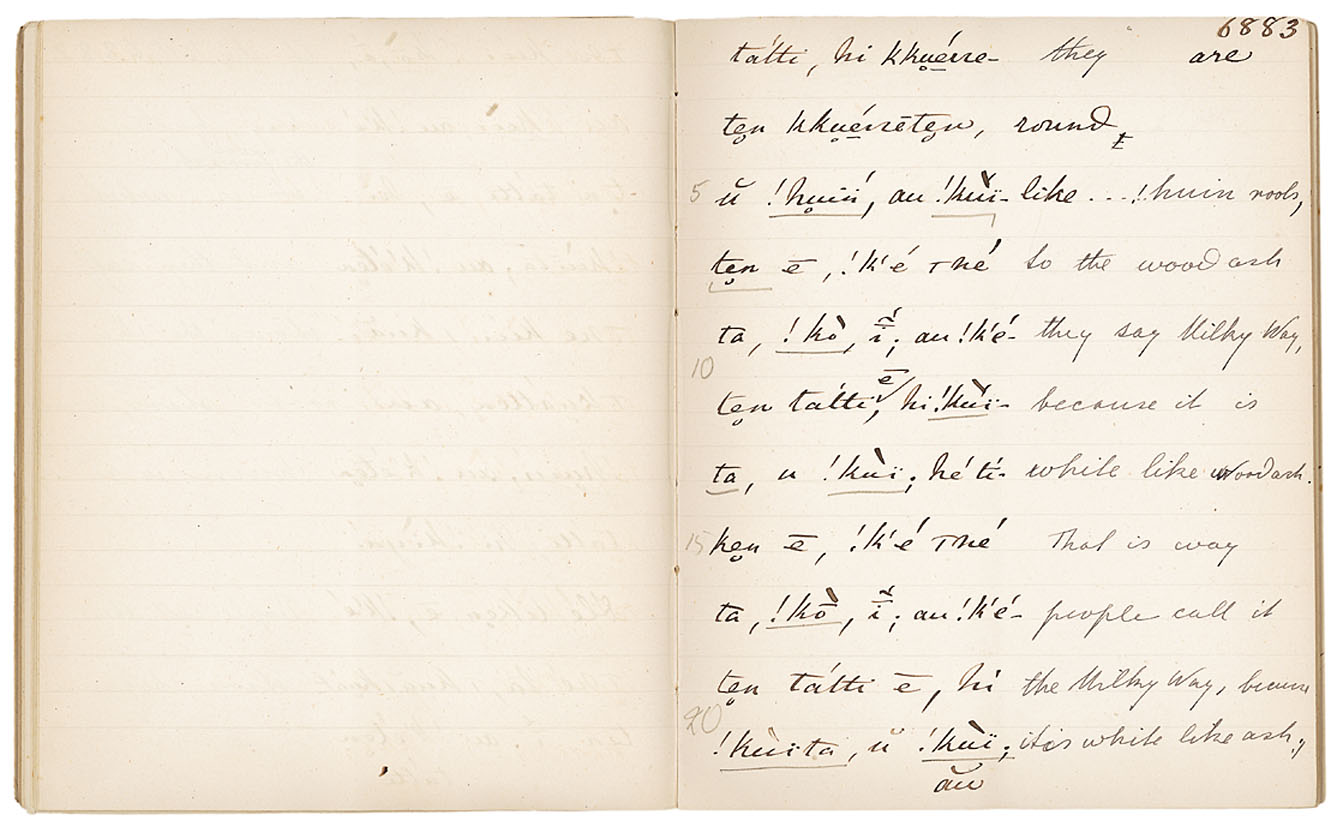 6883
tátti, hi kku̥érre- they are
te̥n kku̥érrete̥n, round,
5 ŭ !hu̥ïń, au !kùï- like ... !huin roots,
te̥n ē, !k'é ꞇné to the wood ash
ta, !kò, ï; au !k'é- they say Milky Way,
10
te̥n tátti ē, hi !kùï- because it is
ta, u !kùï; hé tí- white like wood ash.
15 ke̥n ē, !k'é ꞇné That is way
ta, !kò, ï; au !k'é- people call it
te̥n tátti ē, hi the Milky Way, because
20
!kùïta, ŭ !kùï; it is white like ash;
au